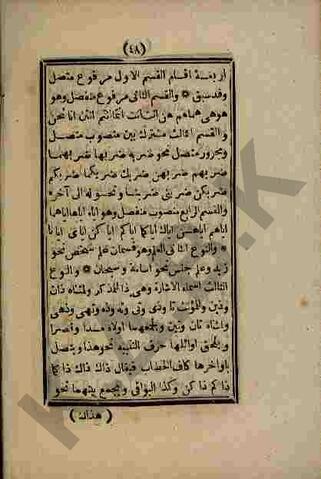 (٤٨)
اربعة اقسام القسم الاول مرفوع متصل
وقد سبق * والقسم الثانى مرفوع منفصل وهو
هو هى هما هم هن انت انت انتما انتم انتن انا نحن
والقسم الثالث مشترك بين منصوب متصل
ومجرور متصل نحو ضربه ضربها ضربهما
ضربهم ضربهن ضربك ضربك ضربكما ضربكم
ضربكن ضربنى ضربنا ونحو له الى آخره
والقسم الرابع منصوب منفصل وهو اياه اياها اياهما
اياهم اياهن اياك اياك اياكما اياكم اياكن اياى ايانا
* والنوع الثانى العلم وهو قسمان علم شخص نحو
زيد وعلم جنس نحو اسامة وسبحان * والنوع
الثالث اسماء الاشارة وهى ذا للمذكر ولمثناه ذان
وذين وللمؤنث تا وذى وتى وته وذه وتهى وذهى
ولمثناه تان وتين ولجمعهما اولاء مدا وقصرا
ويلحق اوائلها حرف التنبيه نحو هذا ويتصل
باواخرها كاف الخطاب فيقال ذاك ذاك ذاكما
ذاكم ذاكن وكذا البواقى ويجمع بينهما نحو
(هذاك)